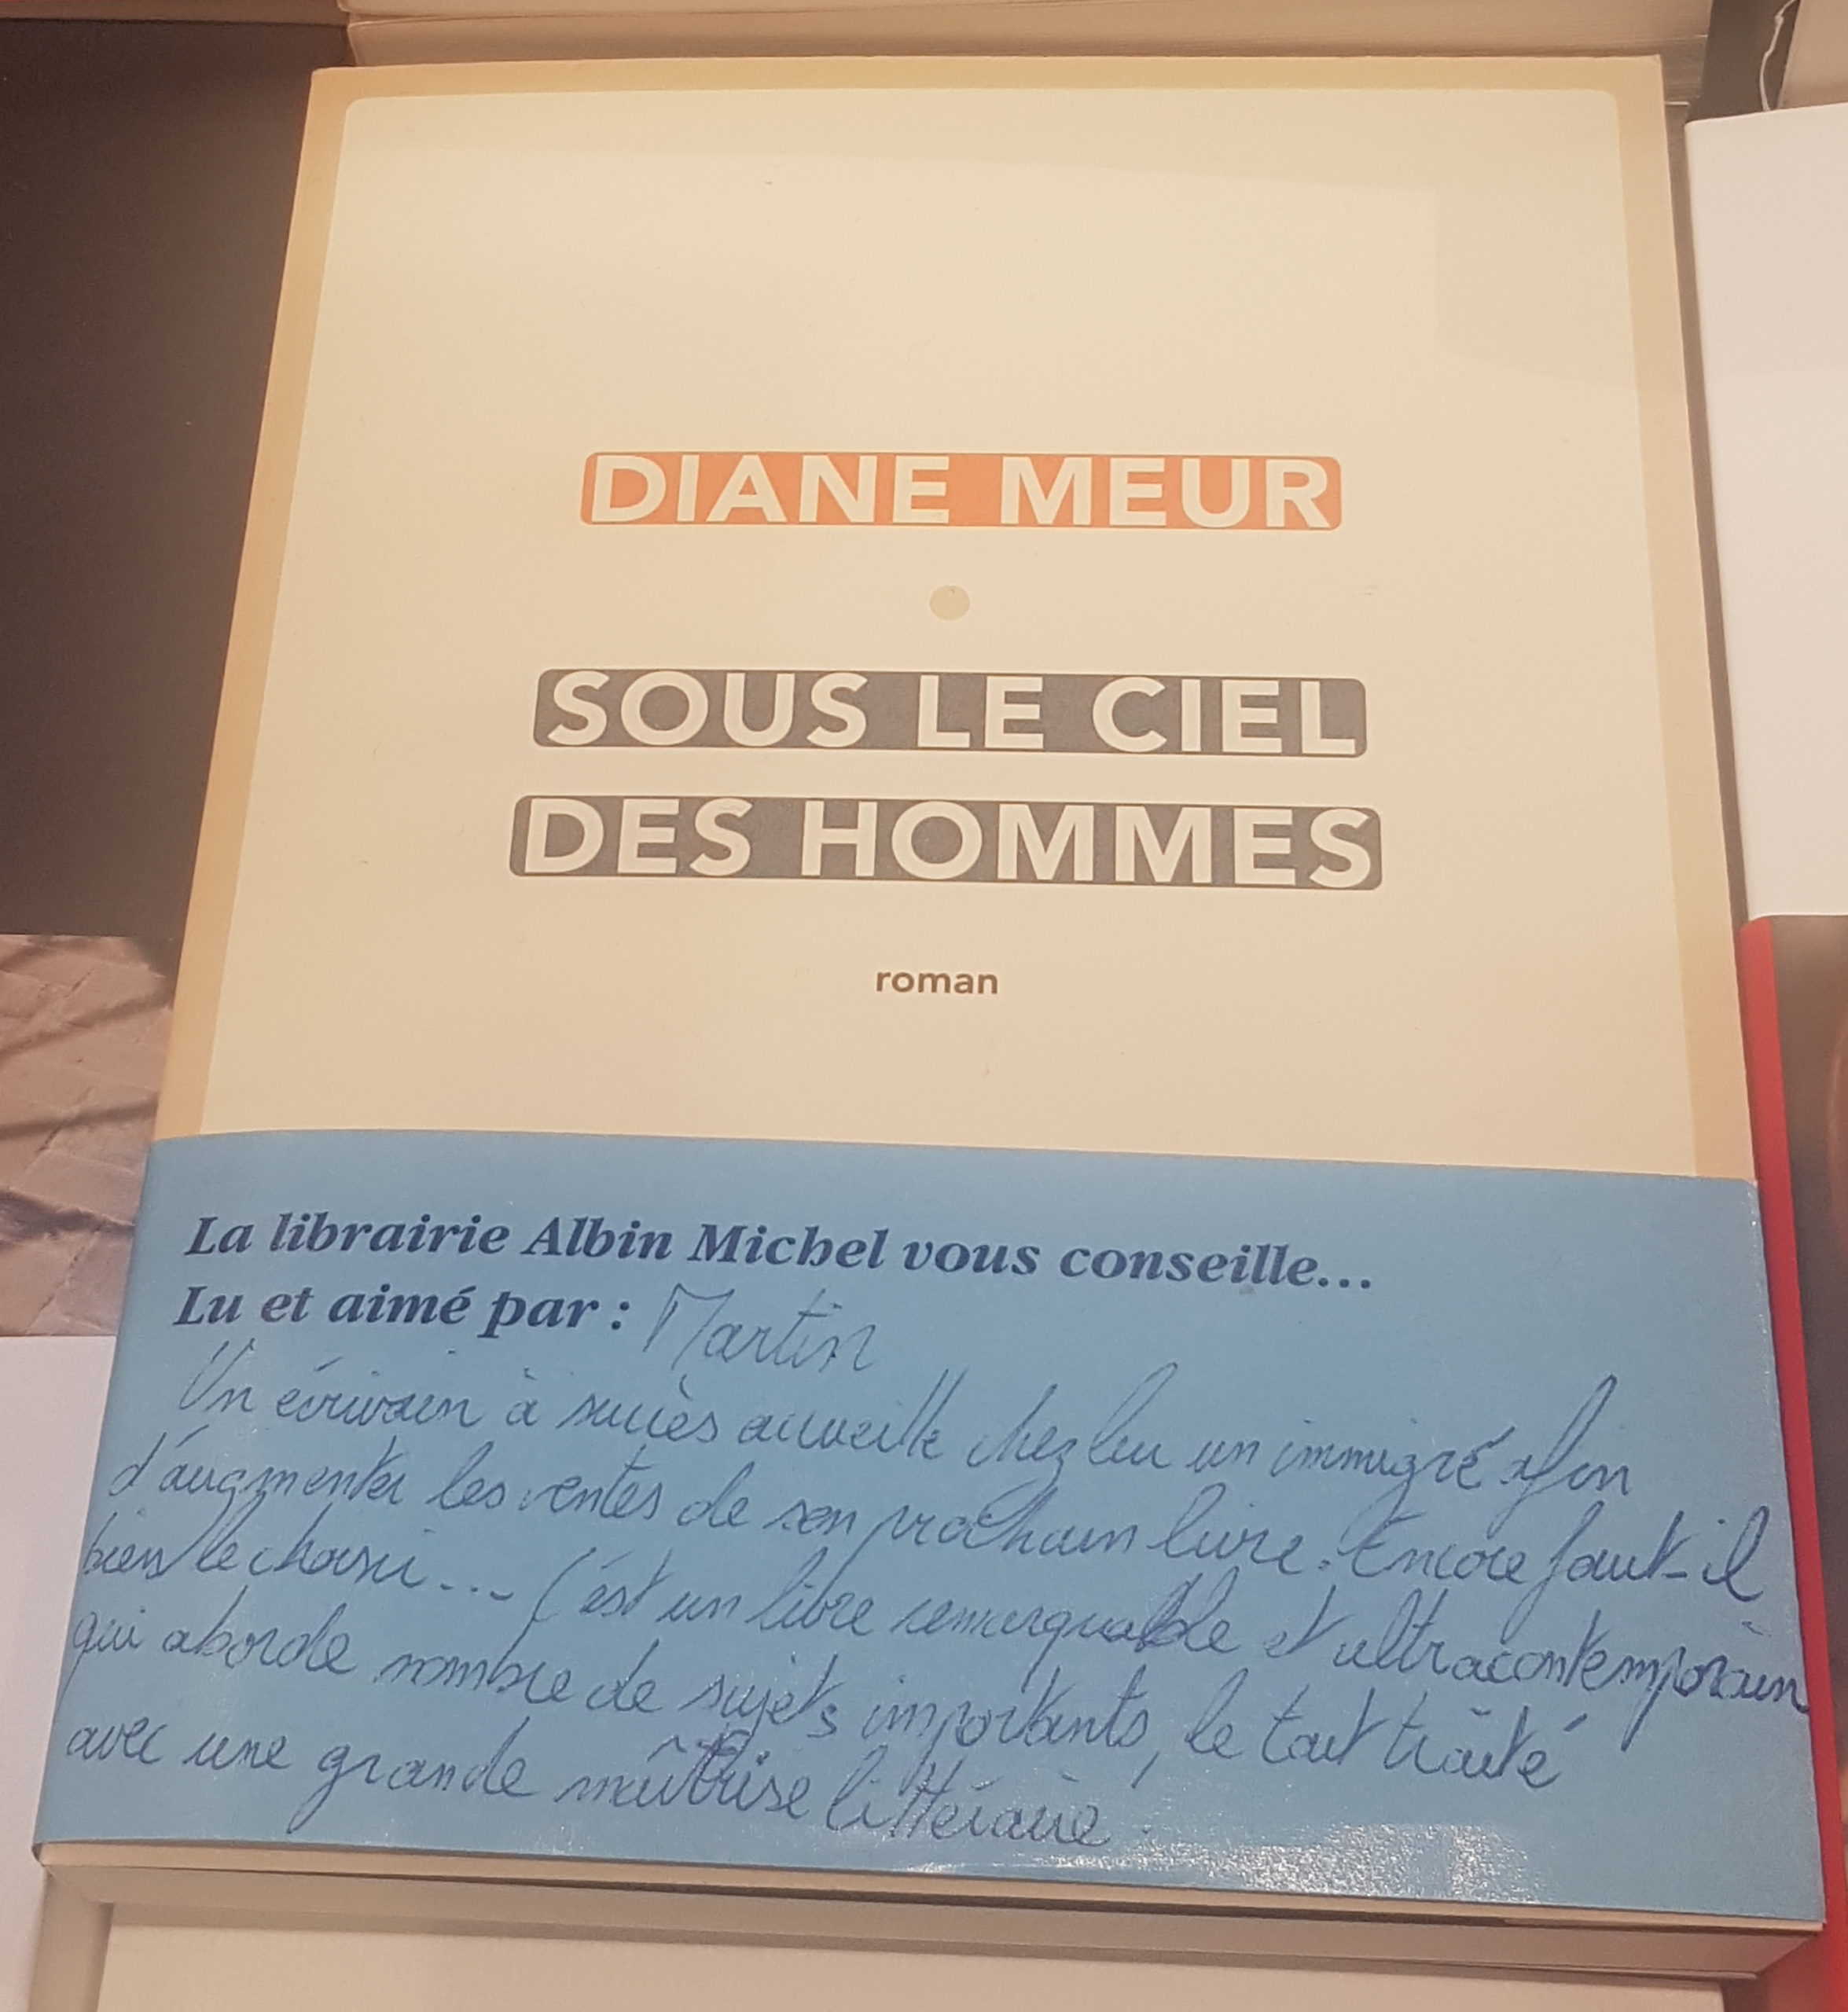 DIANE MEUR
SOUS LE CIEL
DES HOMMES
roman
La librairie Albin Michel vous conseille...
Lu et aimé par : Martin
Un écrivain à succès accueille chez lui un immigré afin
d'augmenter les ventes de son prochain livre. Encore faut-il
bien le choisir... C'est un livre remarquable et ultracontemporain
qui aborde nombre de sujets importants, le tout traité
avec une grande maîtrise littéraire.